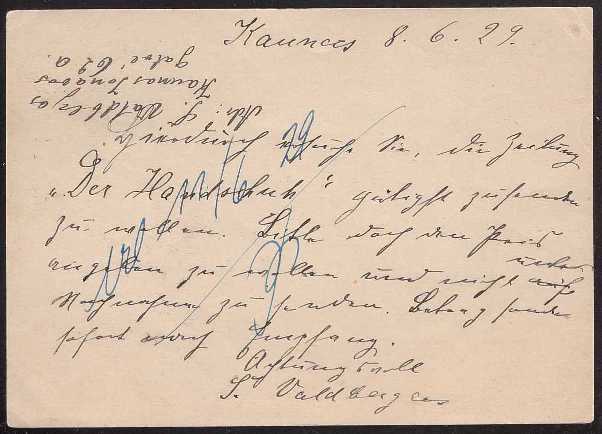 Kaunas 8. 6. 29.
Adr.: S. Valdbergas
Kaunas Jonavos
gatvė 62 a.
Hierdurch ersuche Sie, die Zeitung
„Der Handschuh" gütigst zusenden
zu wollen. Bitte doch den Preis
angeben zu wollen und nicht unter
Nachnahme zu senden. Betrag sende
sofort nach Empfang.
Achtungsvoll
S. Valdbergas